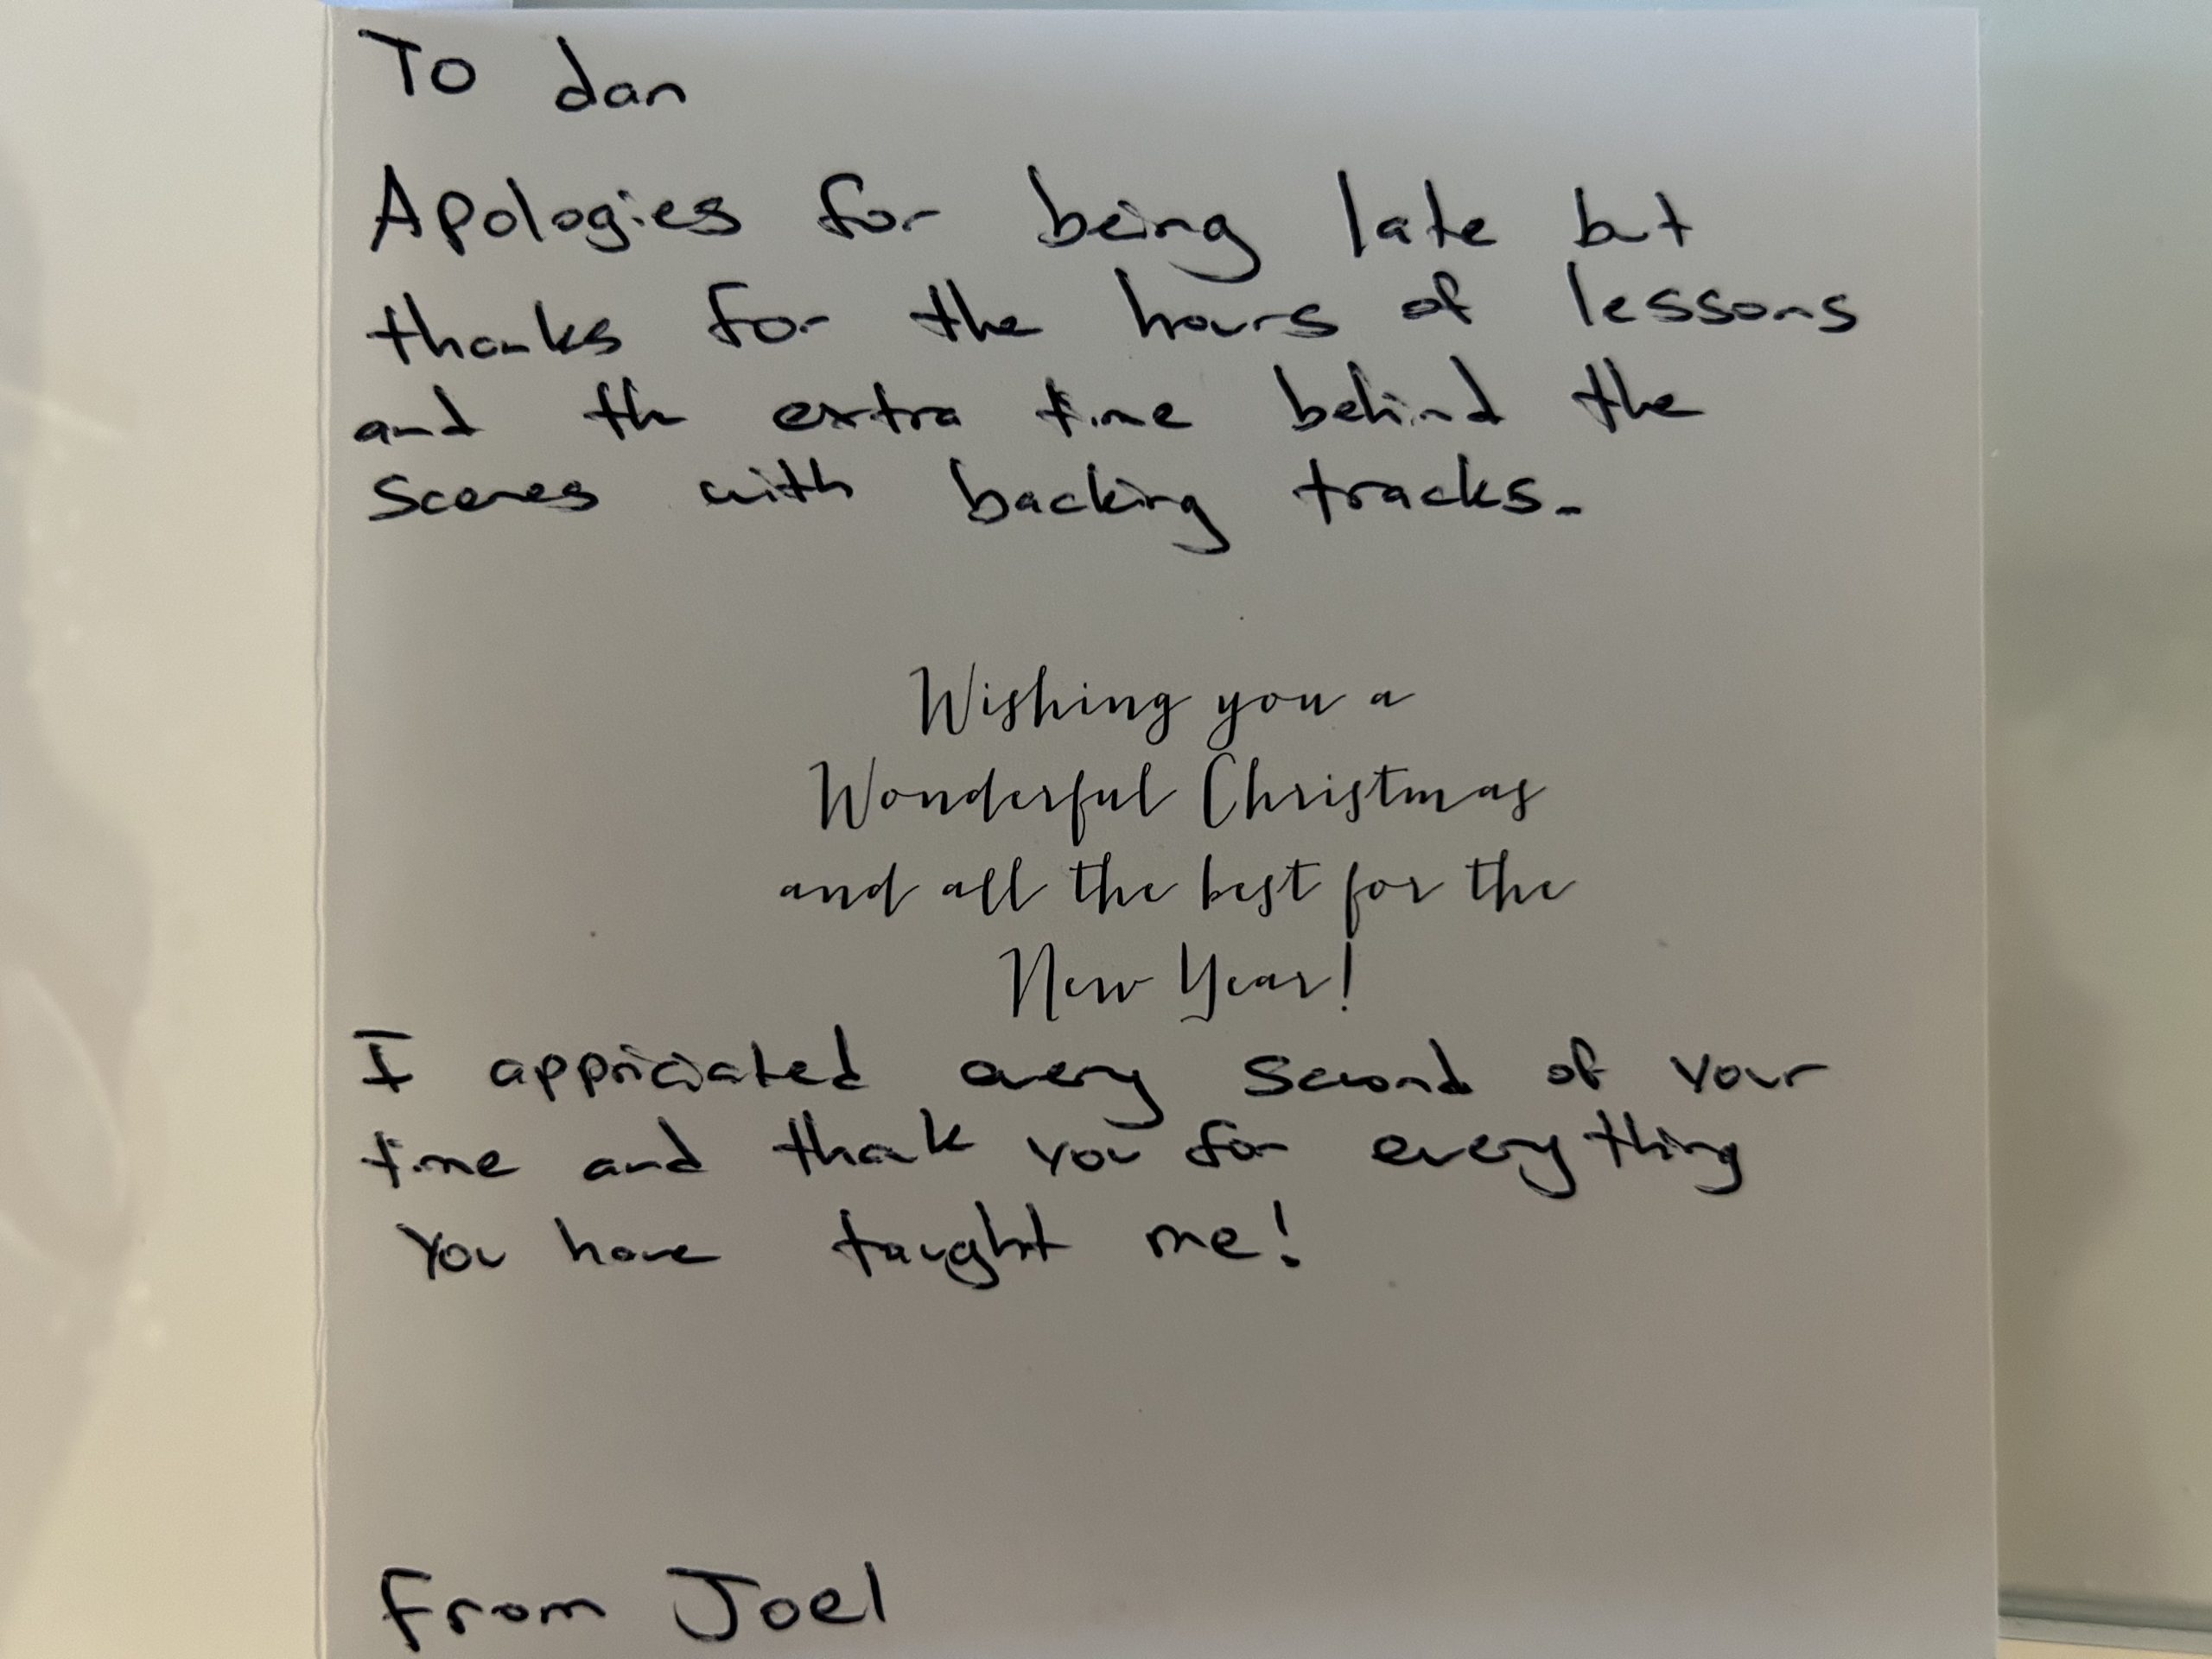 To dan
Apologies for being late but
thanks for the hours of lessons
and th extra time behind the
scenes with backing tracks.
Wishing you a
Wonderful Christmas
and all the best for the
New Year!
I appriciated every second of your
time and thank you for everything
You have taught me!
From Joel